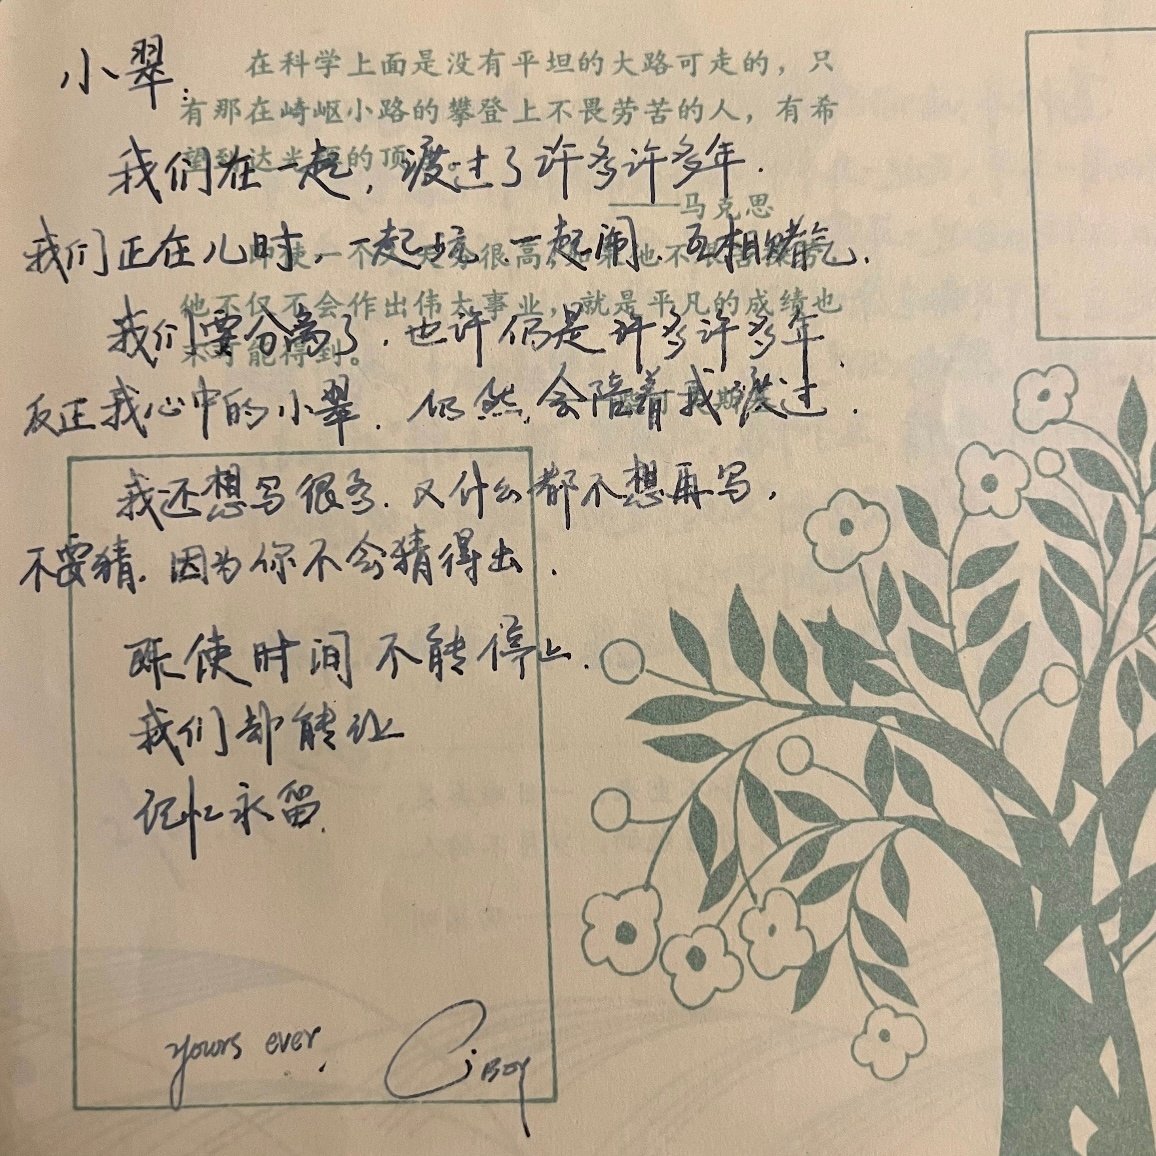 小翠:
我们在一起，渡过了许多许多年.
我们正在儿时，一起玩.一起闹.互相赌气.
我们要分离了.也许仍是许多许多年.
反正我心中的小翠.仍然会陪着我渡过.
我还想写很多.又什么都不想再写，
不要猜.因为你不会猜得出.
既使时间不能停止.
我们却能让
记忆永留.
yours ever.
Ci BOY
在科学上面是没有平坦的大路可走的，只
有那在崎岖小路的攀登上不畏劳苦的人，有希
望到达光辉的顶
——马克思
他不仅不会作出伟大事业，就是平凡的成绩也
不可能得到。